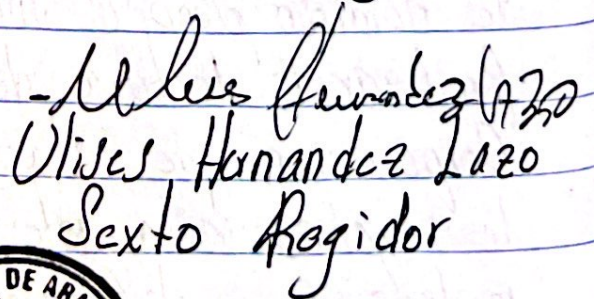 -Ulises Hernandez Lazo
Ulises Hernandez Lazo
Sexto Regidor
DE ARA